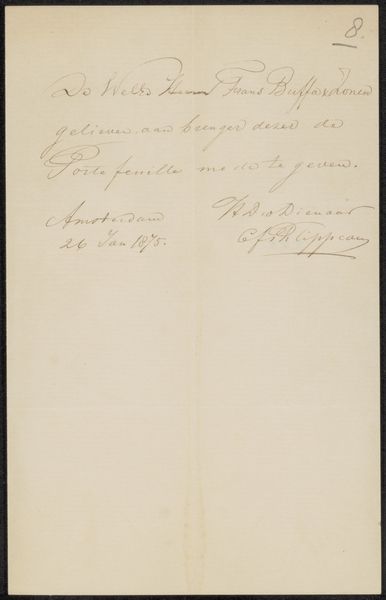 8.
De WelEd Heeren Frans Buffa & Zonen
gelieven aan brenger dezer de
Portefeuille mede te geven.
Amsterdam
26 Jan 1875.
UEd Dw Dienaar